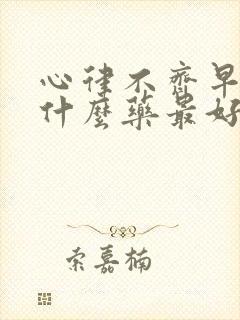 心律不齊早
什麼藥最好
索嘉楠